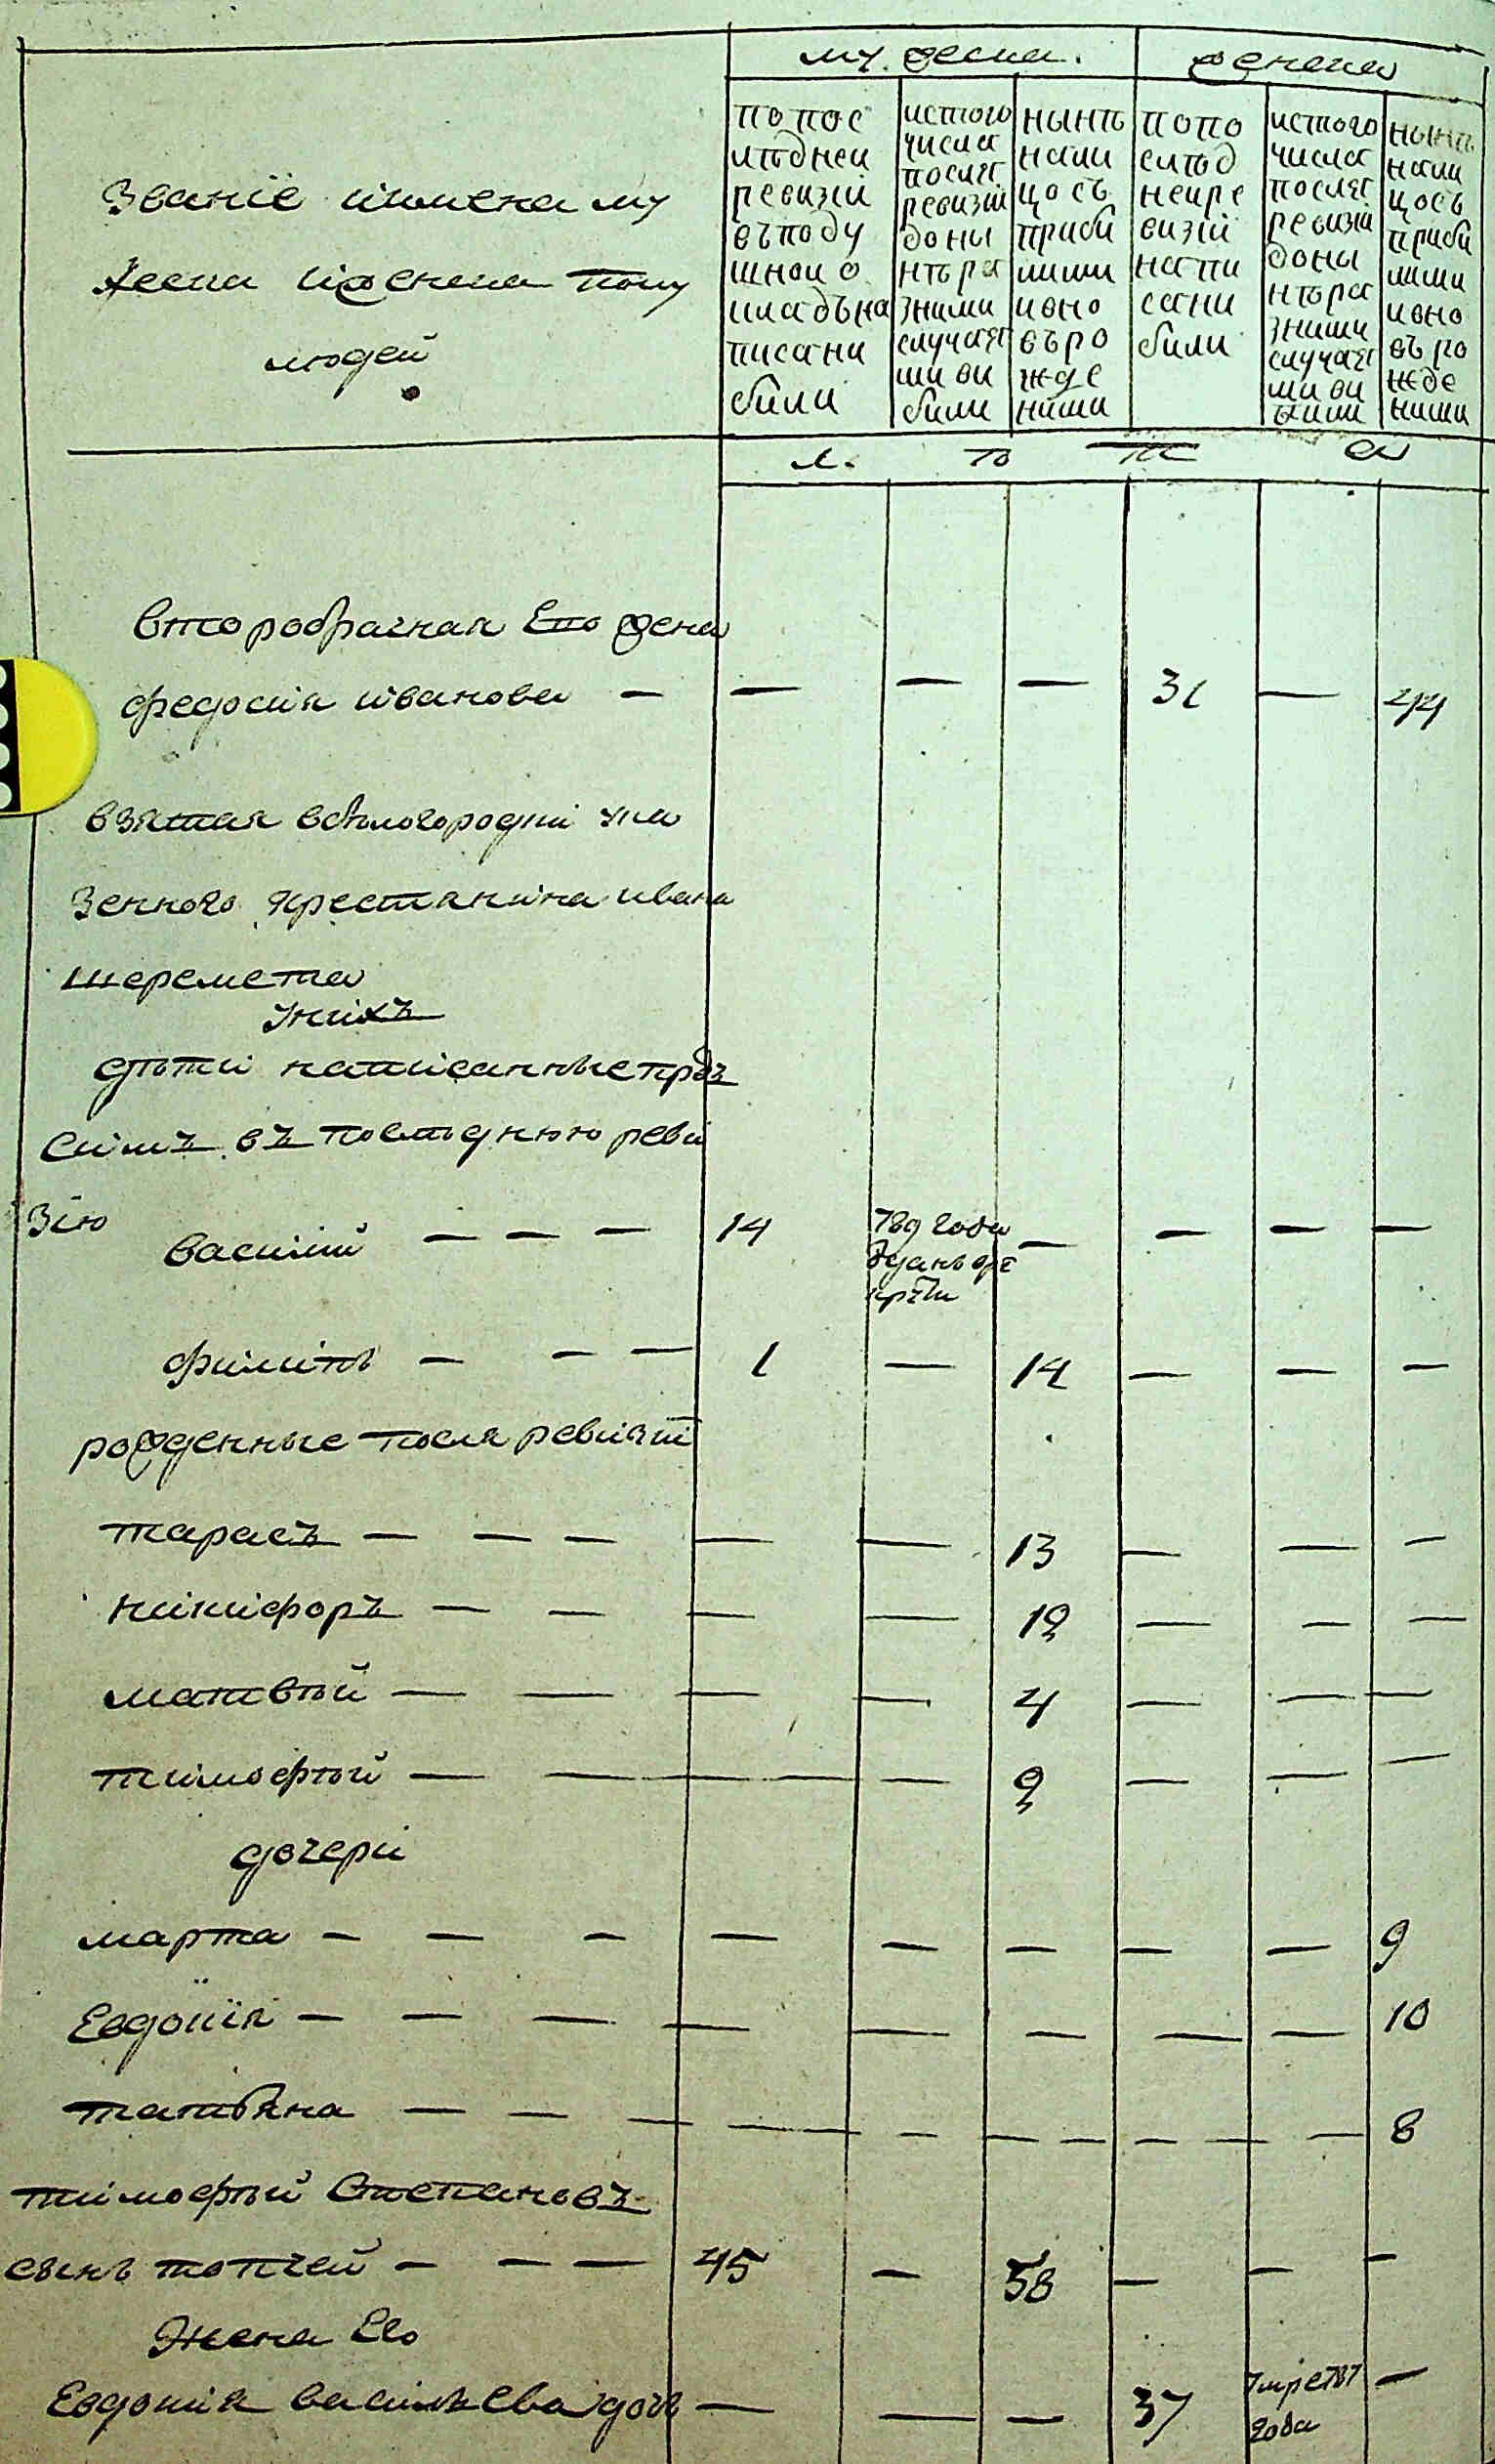 му: жеска. женска
Званіе иимена му
жеска иженска полу
людей
попос
лѣдней
ревизіи
въподу
шной о
кладъна
писани
были
истого
числа
послѣ
ревизіи
доны
нѣра
зними
случая
ми ви
были
нынѣ
нали
цо съ
приби
лими
ивно
въро
жде
ними
попо
слѣд
нейре
визіи
напи
сани
были
истого
числа
послѣ
ревизіи
доны
нѣра
зними
случая
ми ви
были
нынѣ
нали
цосъ
приби
лими
ивно
въ ро
жде
ними
л. ѣ т а
второбрачная Его жена
федосия иванова — — — — 31 — 44
взятая вбѣлогородки ука
зенного крестянина ивана
шеремета
унихъ
дѣти написанные предъ
симъ въ последнюю реви
зію
василий — — — 14 789 года — — — —
филипъ — — — 1 — 14 — — —
рожденные после ревизіи
тарасъ — — — — — 13 — — —
никифоръ — — — — 12 — — —
матвѣй — — — — 4 — — —
тимофѣй — — — — — 2 — — —
дочери
марта — — — — — — — — 9
Евдокія — — — — — — — — 10
татьяна — — — — — — — — — — 8
тимофѣй Степановъ
сынъ топчей — — — 45 — 58 — — —
Жена Его
Евдокия васильева дочь — — — 37 умре 787 —
года